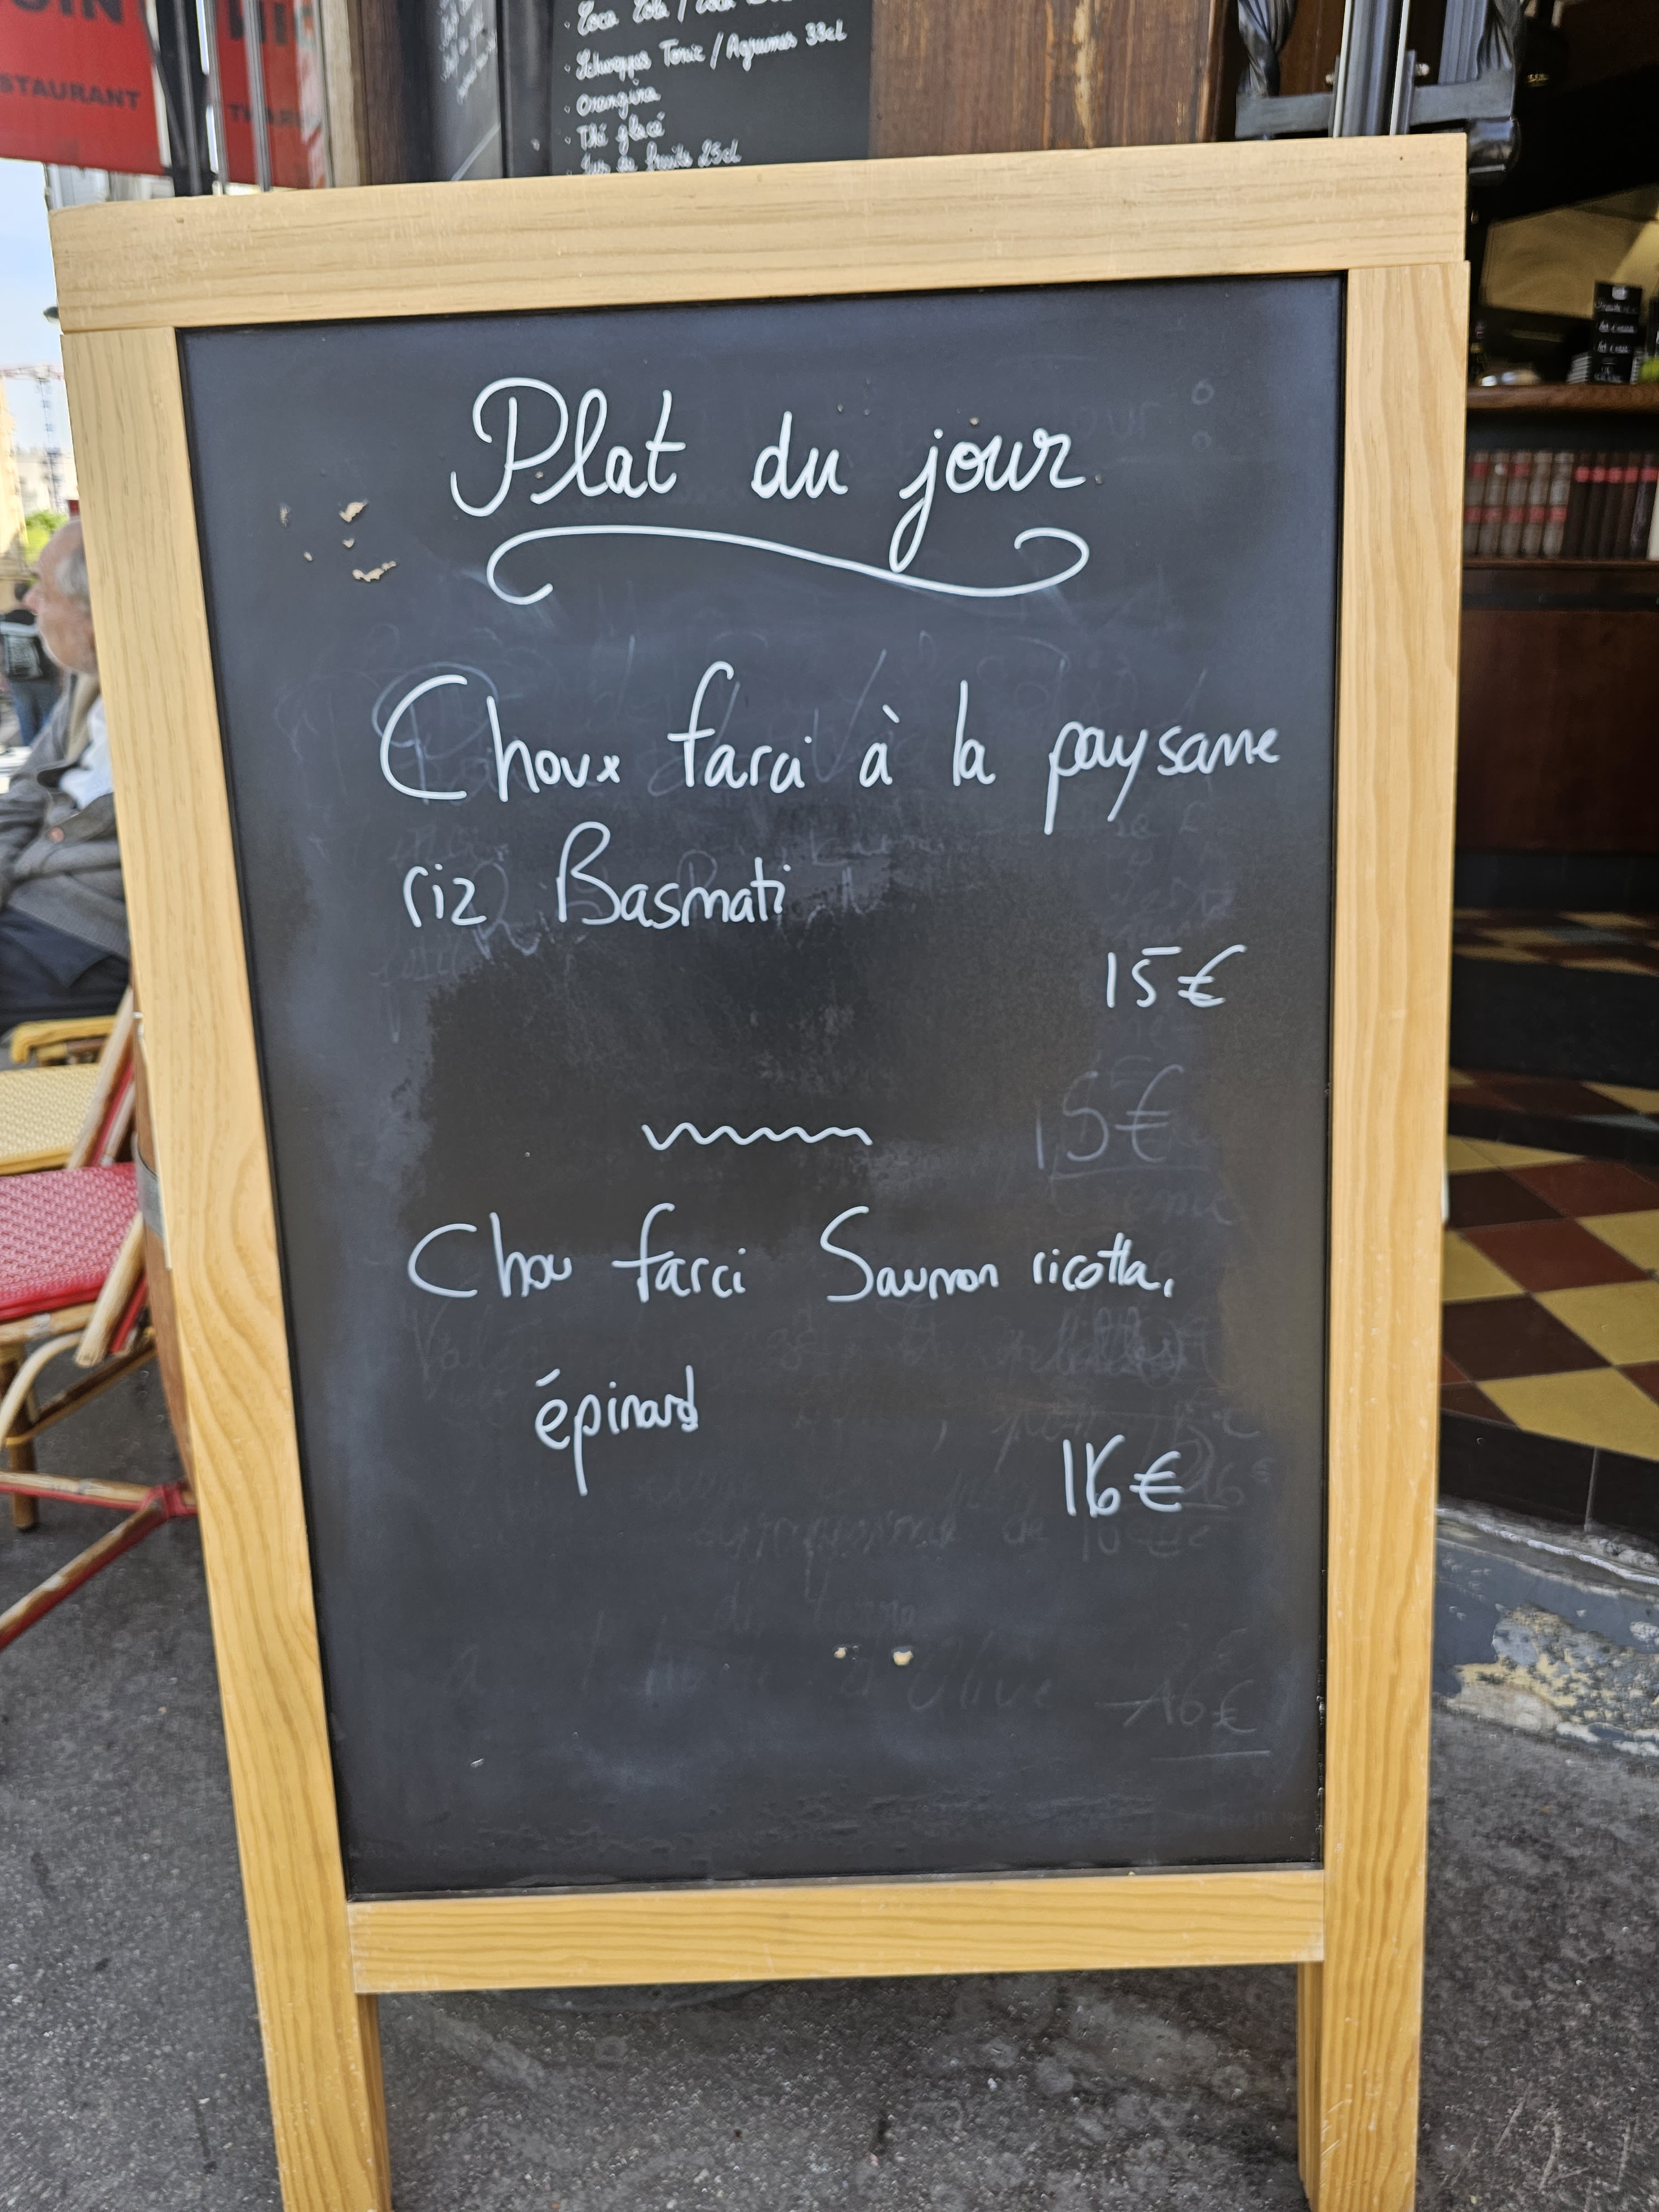 STAURANT
Schweppes Tonic / Agrumes 33cl
Orangina
Thé glacé
Jus de fruits 25cl
Plat du jour
Choux farci à la paysanne
riz Basmati
15€
15€
Chou farci Saumon ricotta,
épinard
16€
16€